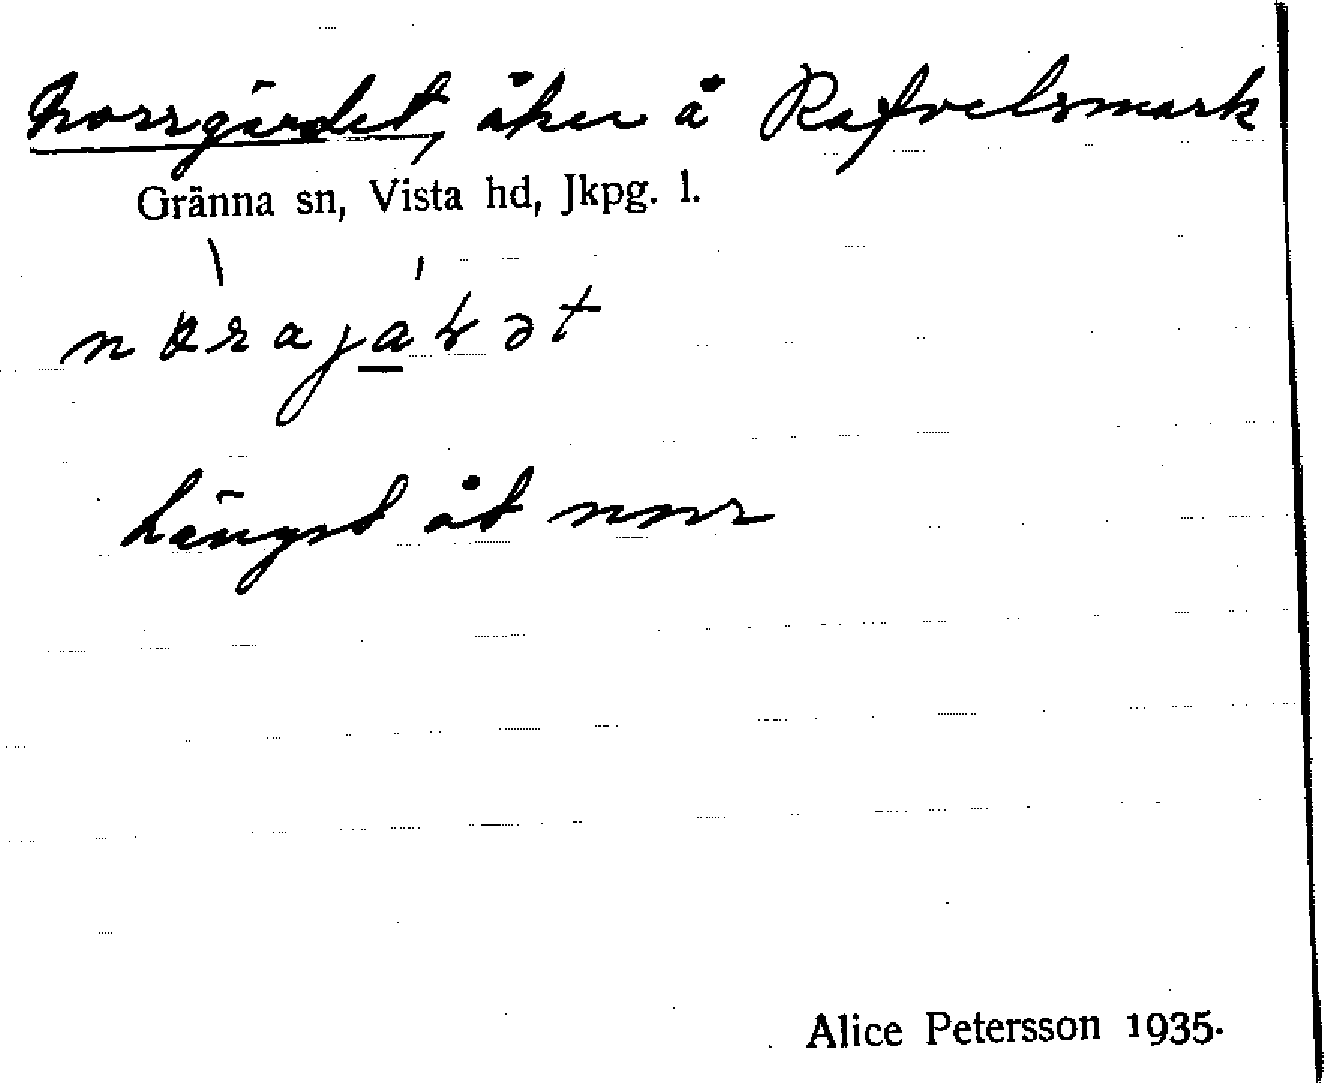 Norrgärdet, åker å Rafvelsmark
Gränna sn, Vista hd, Jkpg. l.
längst åt norr
Alice Petersson 1935.